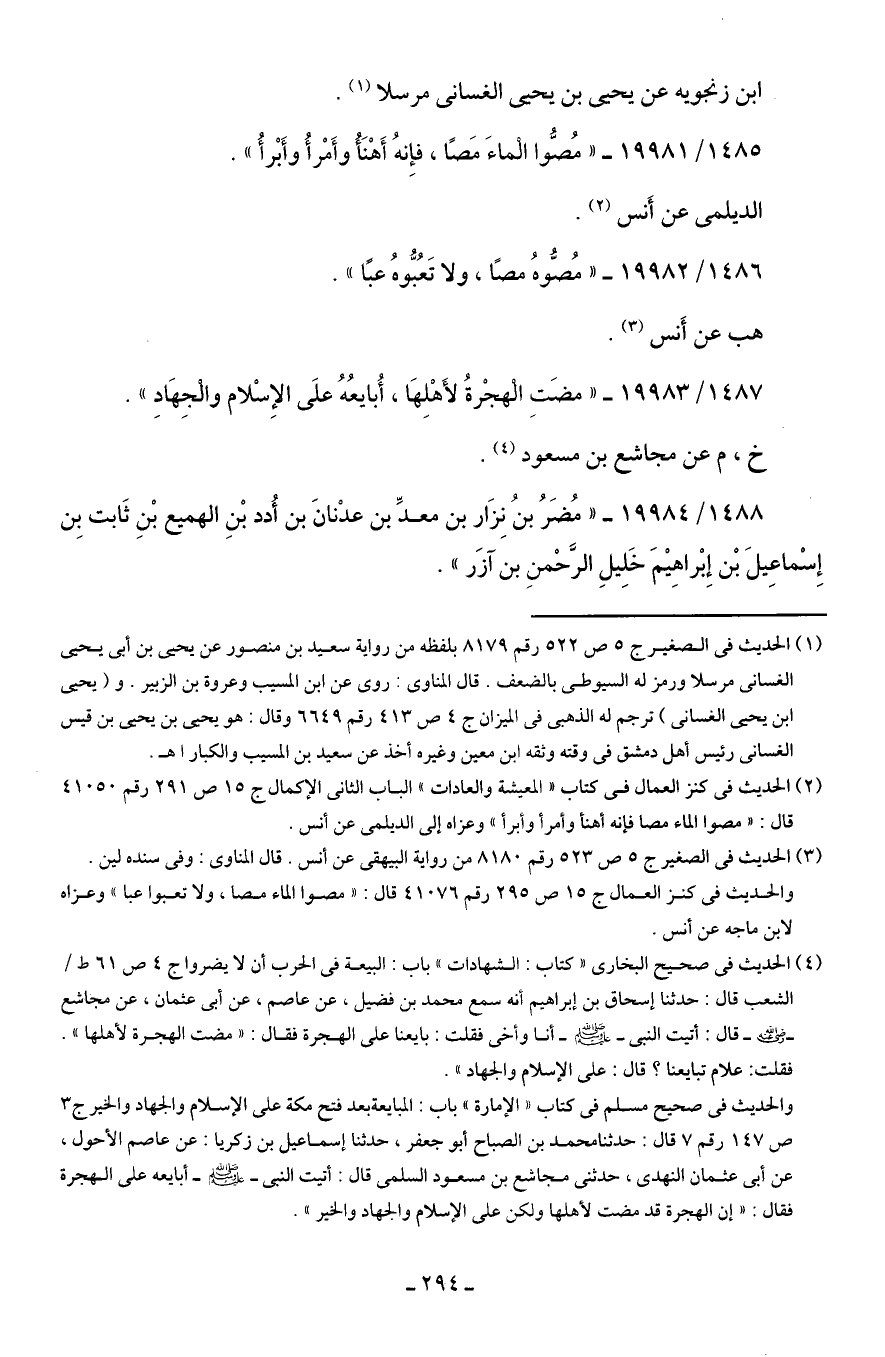 ابن زنجويه عن يحيى بن يحيى الغسانى مرسلا (١) .
١٤٨٥/ ١٩٩٨١ ـ « مُصُّوا الْماءَ مَصًا ، فإِنهُ أَهْنَأُ وأَمْرأُ وأَبْرأُ » .
الديلمى عن أَنس (٢) .
١٤٨٦/ ١٩٩٨٢ ـ « مُصُّوهُ مصًا ، ولا تَعُبُّوهُ عبًا » .
هب عن أَنس (٣) .
١٤٨٧/ ١٩٩٨٣ ـ « مضَتِ الْهجْرةُ لأَهْلِهَا ، أُبايعُهُ علَى الإِسْلام والْجِهَادِ » .
خ ، م عن مجاشع بن مسعود (٤) .
١٤٨٨/ ١٩٩٨٤ ـ « مُضَرُ بنُ نِزَار بن معـدِّ بن عدْنانَ بن أُدد بْنِ الهميع بْنِ ثَابت بنِ
إِسْماعِيلَ بْن إِبْراهِيْمَ خَلِيلِ الرَّحْمنِ بن آزَر » .
(١) الحديث فى الـصغيـر ج ٥ ص ٥٢٢ رقم ٨١٧٩ بلفظه من رواية سعـيد بن منصـور عن يحيى بن أبى يـحيى
الغسانى مرسلا ورمز له السيوطـى بالضعف . قال المناوى : روى عن ابن المسيب وعروة بن الزبير . و ( يحيى
ابن يحيى الغسانى ) ترجم له الذهبى فى الميزان ج ٤ ص ٤١٣ رقم ٦٦٤٩ وقال : هو يحيى بن يحيى بن قيس
الغسانى رئيس أهل دمشق فى وقته وثقه ابن معين وغيره أخذ عن سعيد بن المسيب والكبار ا هـ .
(٢) الحديث فى كنز العمال فـى كتاب « المعيشة والعادات » البـاب الثانى الإكمال ج ١٥ ص ٢٩١ رقم ٤١٠٥٠
قال : « مصوا الماء مصا فإنه أهنأ وأمرأ وأبرأ » وعزاه إلى الديلمى عن أنس .
(٣) الحديث فى الصغير ج ٥ ص ٥٢٣ رقم ٨١٨٠ من رواية البيهقى عن أنس . قال المناوى : وفى سنده لين .
والحـديث فى كنـز العـمال ج ١٥ ص ٢٩٥ رقم ٤١٠٧٦ قال : « مصـوا الماء مـصا ، ولا تعـبوا عبا » وعـزاه
لابن ماجه عن أنس .
(٤) الحديث فى صحيح البخارى « كتاب : الـشهادات » باب : البيعـة فى الحرب أن لا يضروا ج ٤ ص ٦١ ط /
الشعب قال : حدثنا إسحاق بن إبراهيم أنه سمع محمد بن فضيل ، عن عاصم ، عن أبى عثمان ، عن مجاشع
ـ رضي الله عنه ـ قال : أتيت النبى ـ ﷺ ـ أنـا وأخى فقلت : بايعنا على الهـجرة فقـال : « مضت الهجـرة لأهلها » .
فقلت: علام تبايعنا ؟ قال : على الإسلام والجهاد » .
والحديث فى صحيح مسلم فى كتاب « الإمارة » باب : المبايعةبعد فتح مكة على الإسـلام والجهاد والخير ج٣
ص ١٤٧ رقم ٧ قال : حدثنامحمـد بن الصباح أبو جعفر ، حدثنا إسمـاعيل بن زكريا : عن عاصم الأحول ،
عن أبى عثـمان النهدى ، حدثنى مـجاشع بن مسعـود السلمى قال : أتيت النبى ـ ﷺ ـ أبايعه على الـهجرة
فقال : « إن الهجرة قد مضت لأهلها ولكن على الإسلام والجهاد والخير » .
ـ ٢٩٤ ـ